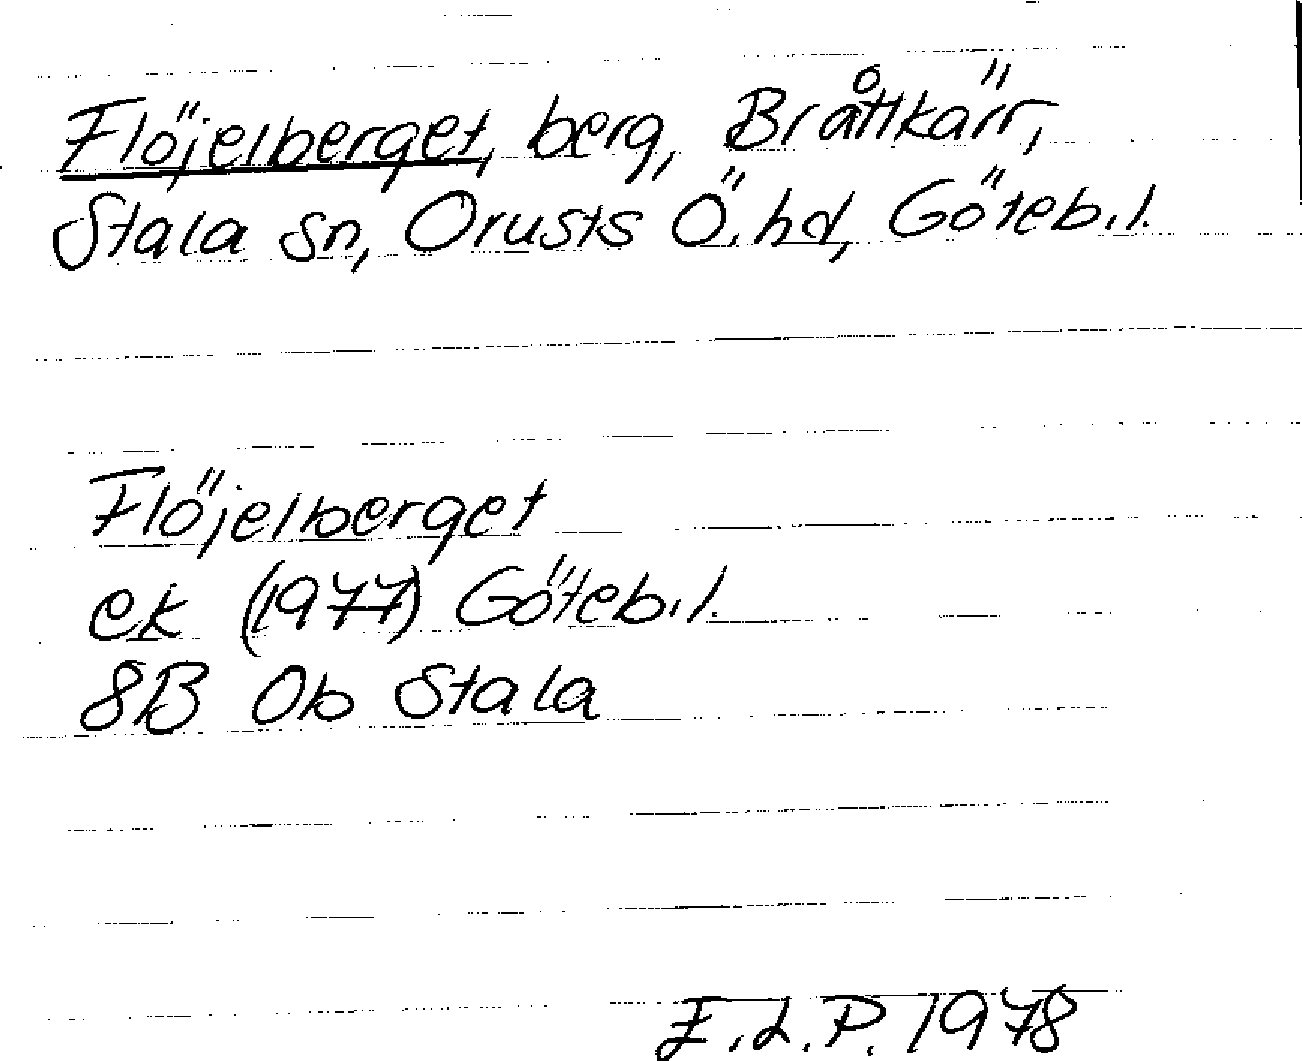 Flöjelberget, berg, Bråttkärr,
Stala sn, Orusts Ö. hd, Göteb. l.
Flöjelberget
ek (1977) Göteb. l.
8B 0b Stala
F.L.P. 1978